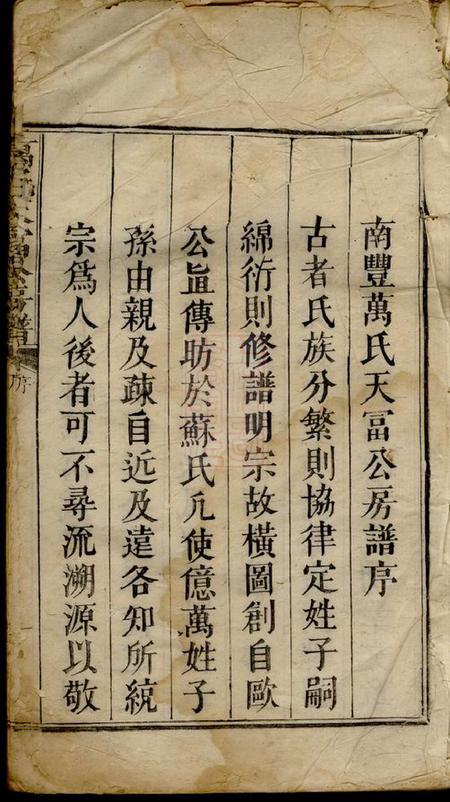 南豐萬氏天冨公房譜序
古者氏族分繁則協律定姓子嗣
綿衍則修譜明宗故橫圖創自歐
公旹傳昉於蘇氏凢使億萬姓子
孫由親及疎自近及遠各知所統
宗爲人後者可不尋流溯源以敬